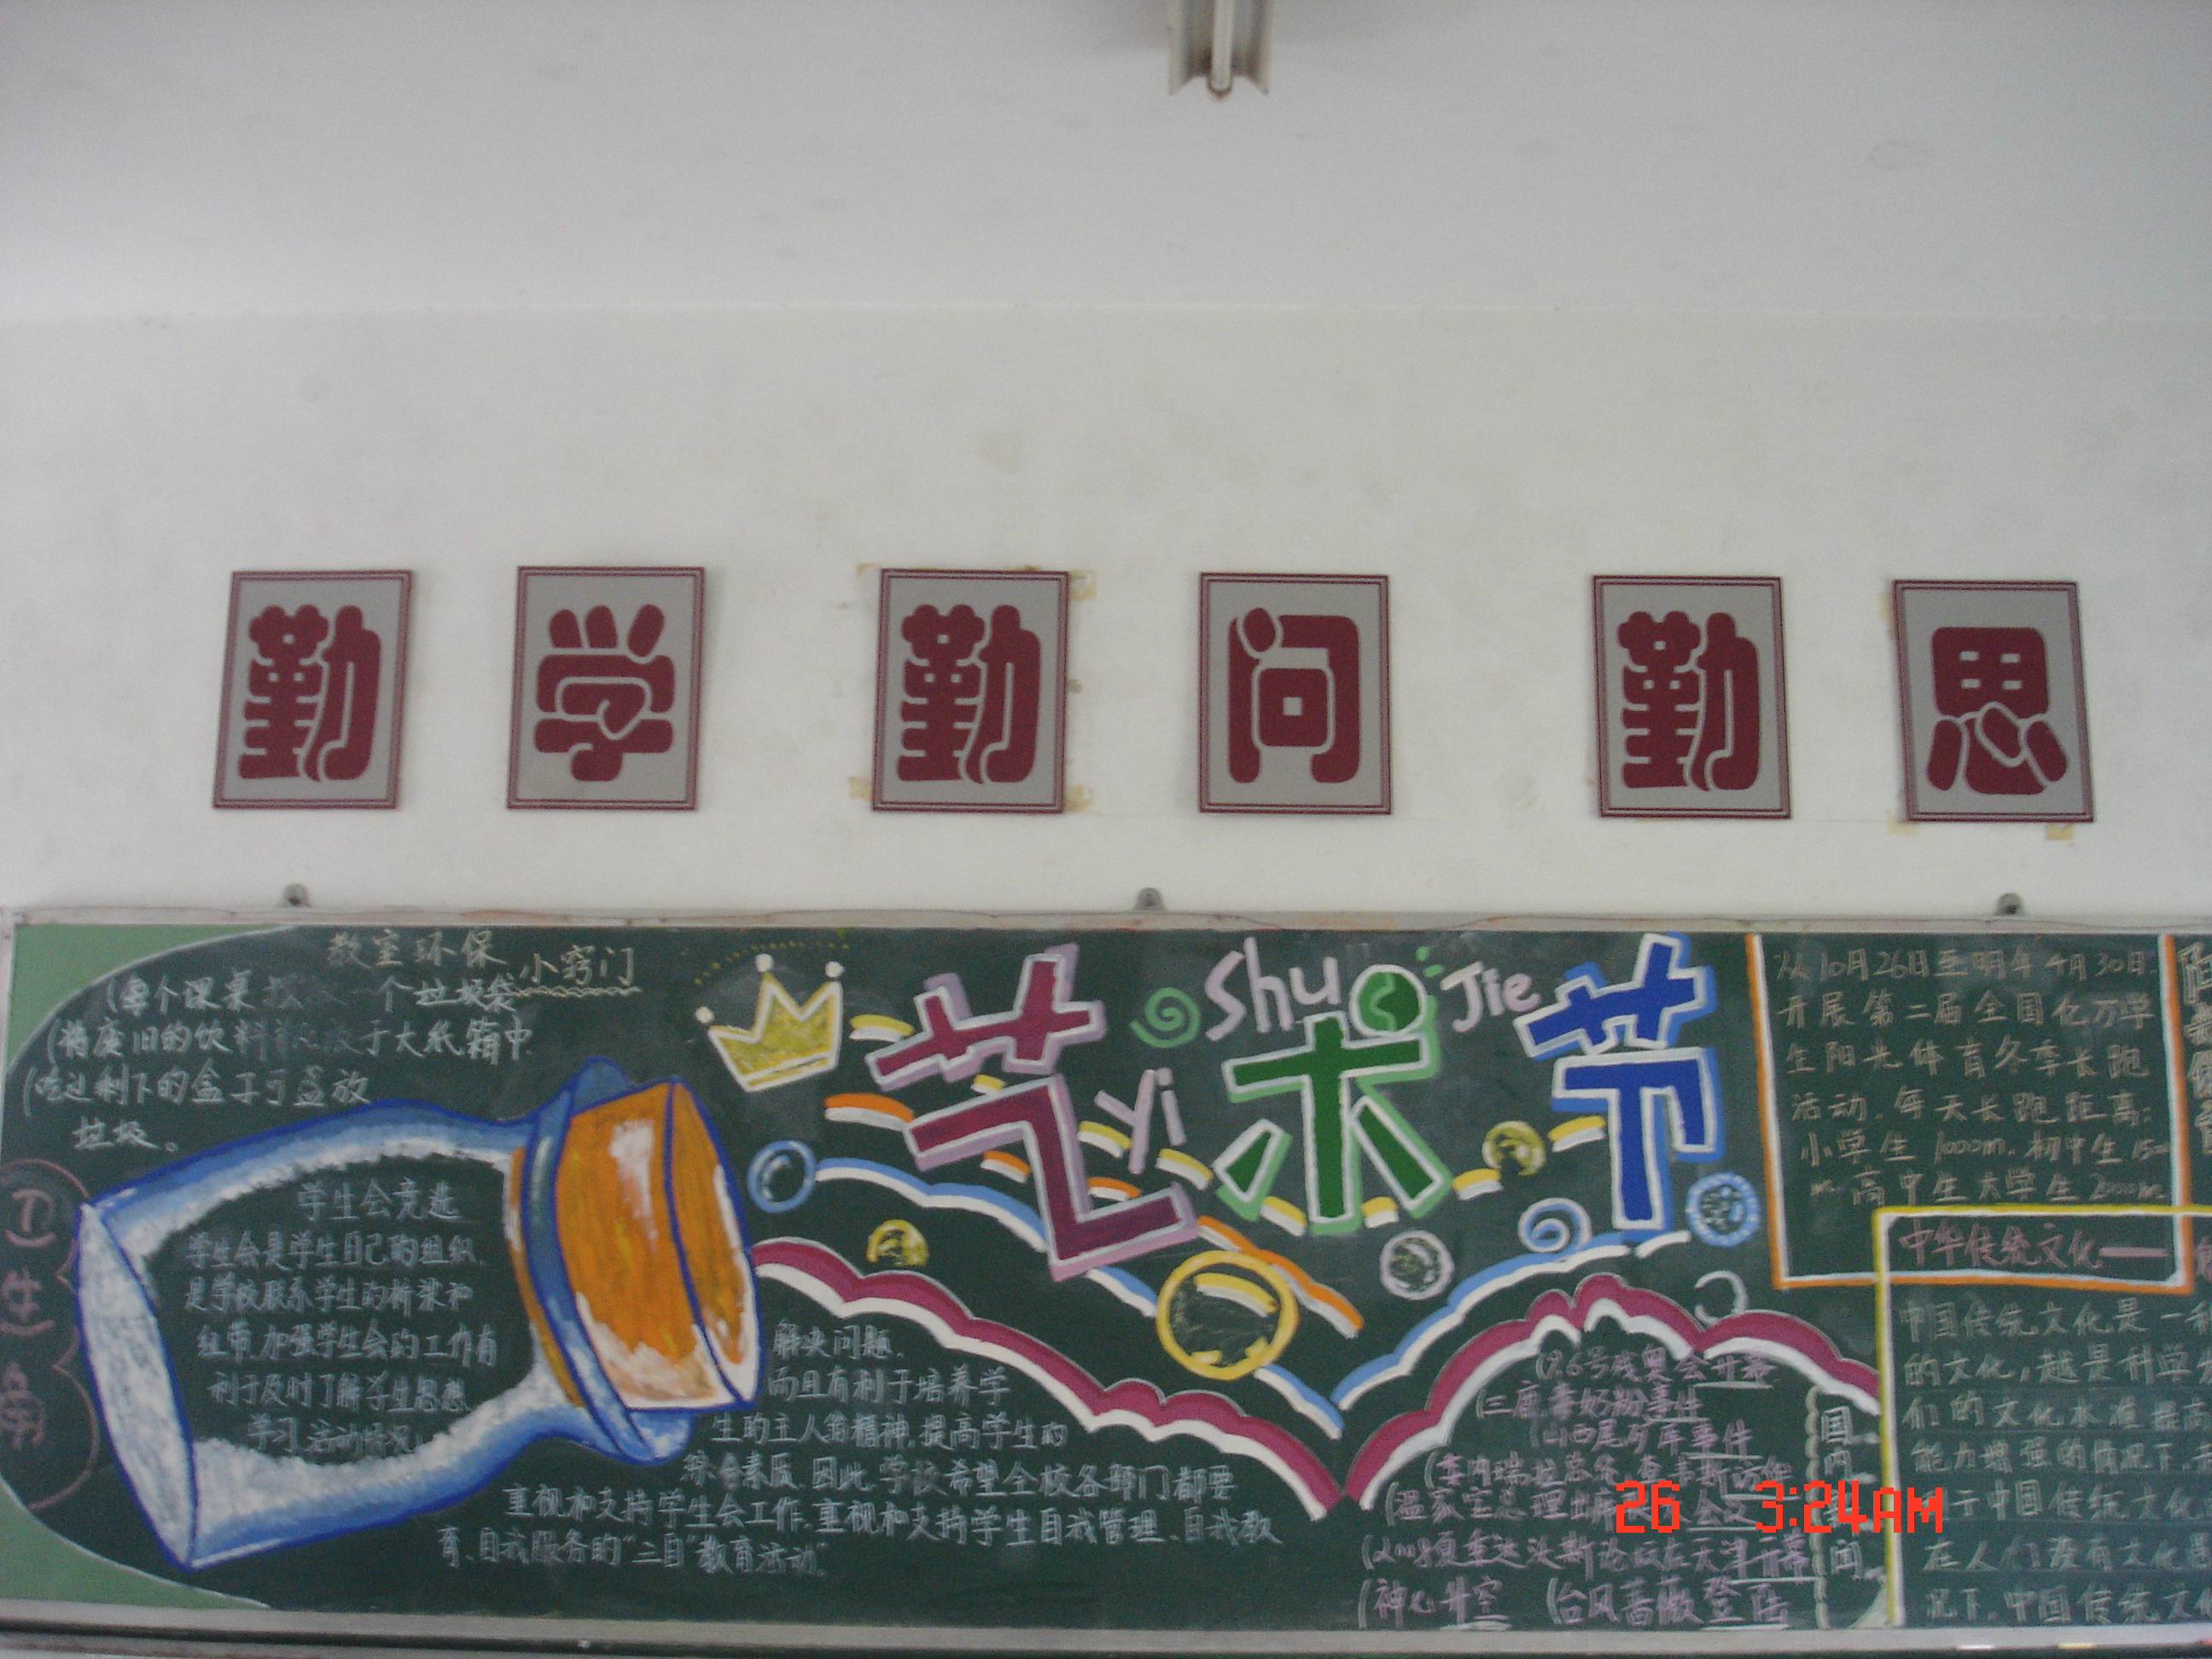 勤 学 勤 问 勤 思
教室环保小窍门
个垃圾袋
将废旧的饮料
于大纸箱中
吃过剩下的盒子可盛放
垃圾。
卫生角
学生会竞选
学生会是学生自己的组织,
是学校联系学生的桥梁和
纽带,加强学生会的工作有
利于及时了解学生思想、
学习、活动情况,
解决问题.
而且有利于培养学
生的主人翁精神,提高学生的
综合素质,因此,学校希望全校各部门都要
重视和支持学生会工作,重视和支持学生自我管理、自我教
育、自我服务的“三自”教育活动”
艺术节
yi Shu Jie
9.6号残奥会开幕
三鹿毒奶粉事件
山西尾矿库事件
温家宝总理出席
夏季达沃斯论坛在天津开幕
神七升空 台风蔷薇登陆
国内
闻
从10月26日至明年4月30日
开展第二届全国亿万学
生阳光体育冬季长跑
活动,每天长跑距离:
小学生 1000m, 初中生
高中生大学生 2000m
中华传统文化——
中国传统文化是一
的文化,越是科学
们的文化水准提高
能力增强的情况下,
于中国传统文化
在人们没有文化
况下,中国传统文
26 3:24AM